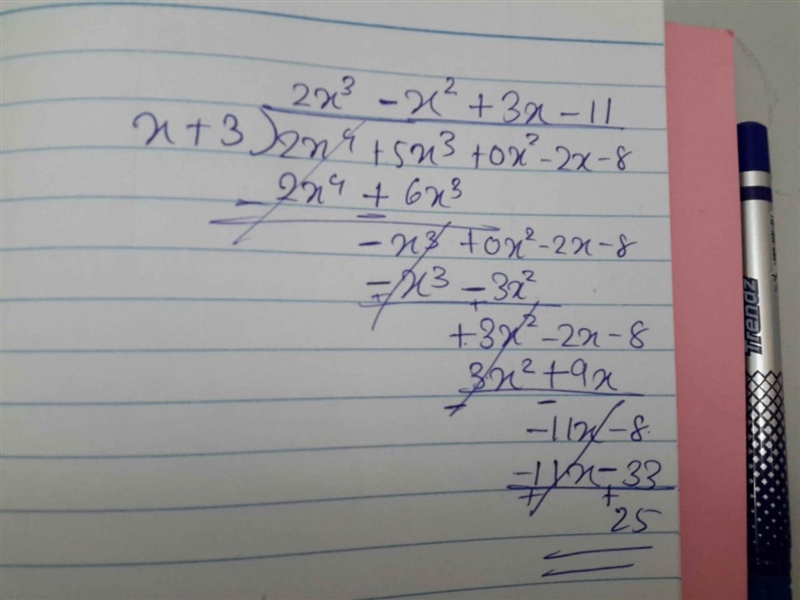 2x³ - x² + 3x - 11
x + 3 ) 2x⁴ + 5x³ + 0x² - 2x - 8
- 2x⁴ + 6x³
-
- x³ + 0x² - 2x - 8
- x³ - 3x²
+ +
+ 3x² - 2x - 8
3x² + 9x
- -
- 11x - 8
- 11x - 33
+ +
25
Trendz